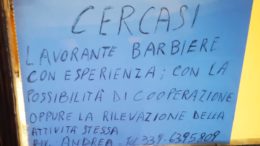 CERCASI
LAVORANTE BARBIERE
CON ESPERIENZA; CON LA
POSSIBILITÀ DI COOPERAZIONE
OPPURE LA RILEVAZIONE DELLA
ATTIVITÀ STESSA
RIV. ANDREA. Tel 339-6395809